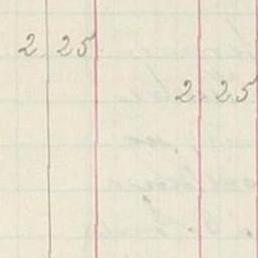 2 25
2 25